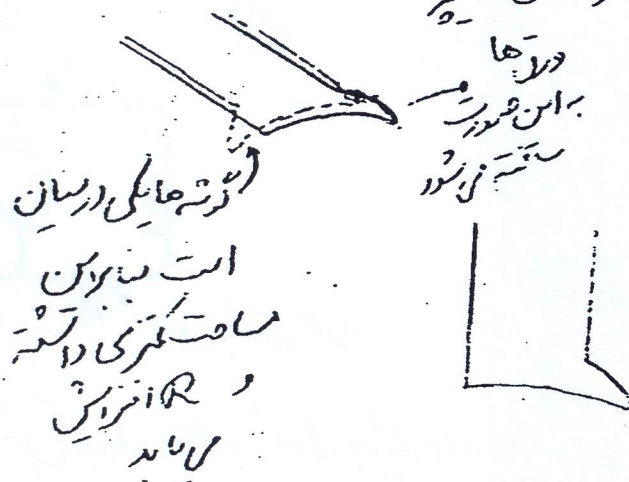 ورق ها
به این صورت
ساخته می شود
گوشه ها یکی در میان
است بنابراین
مساحت کمتری داشته
و R افزایش
می یابد